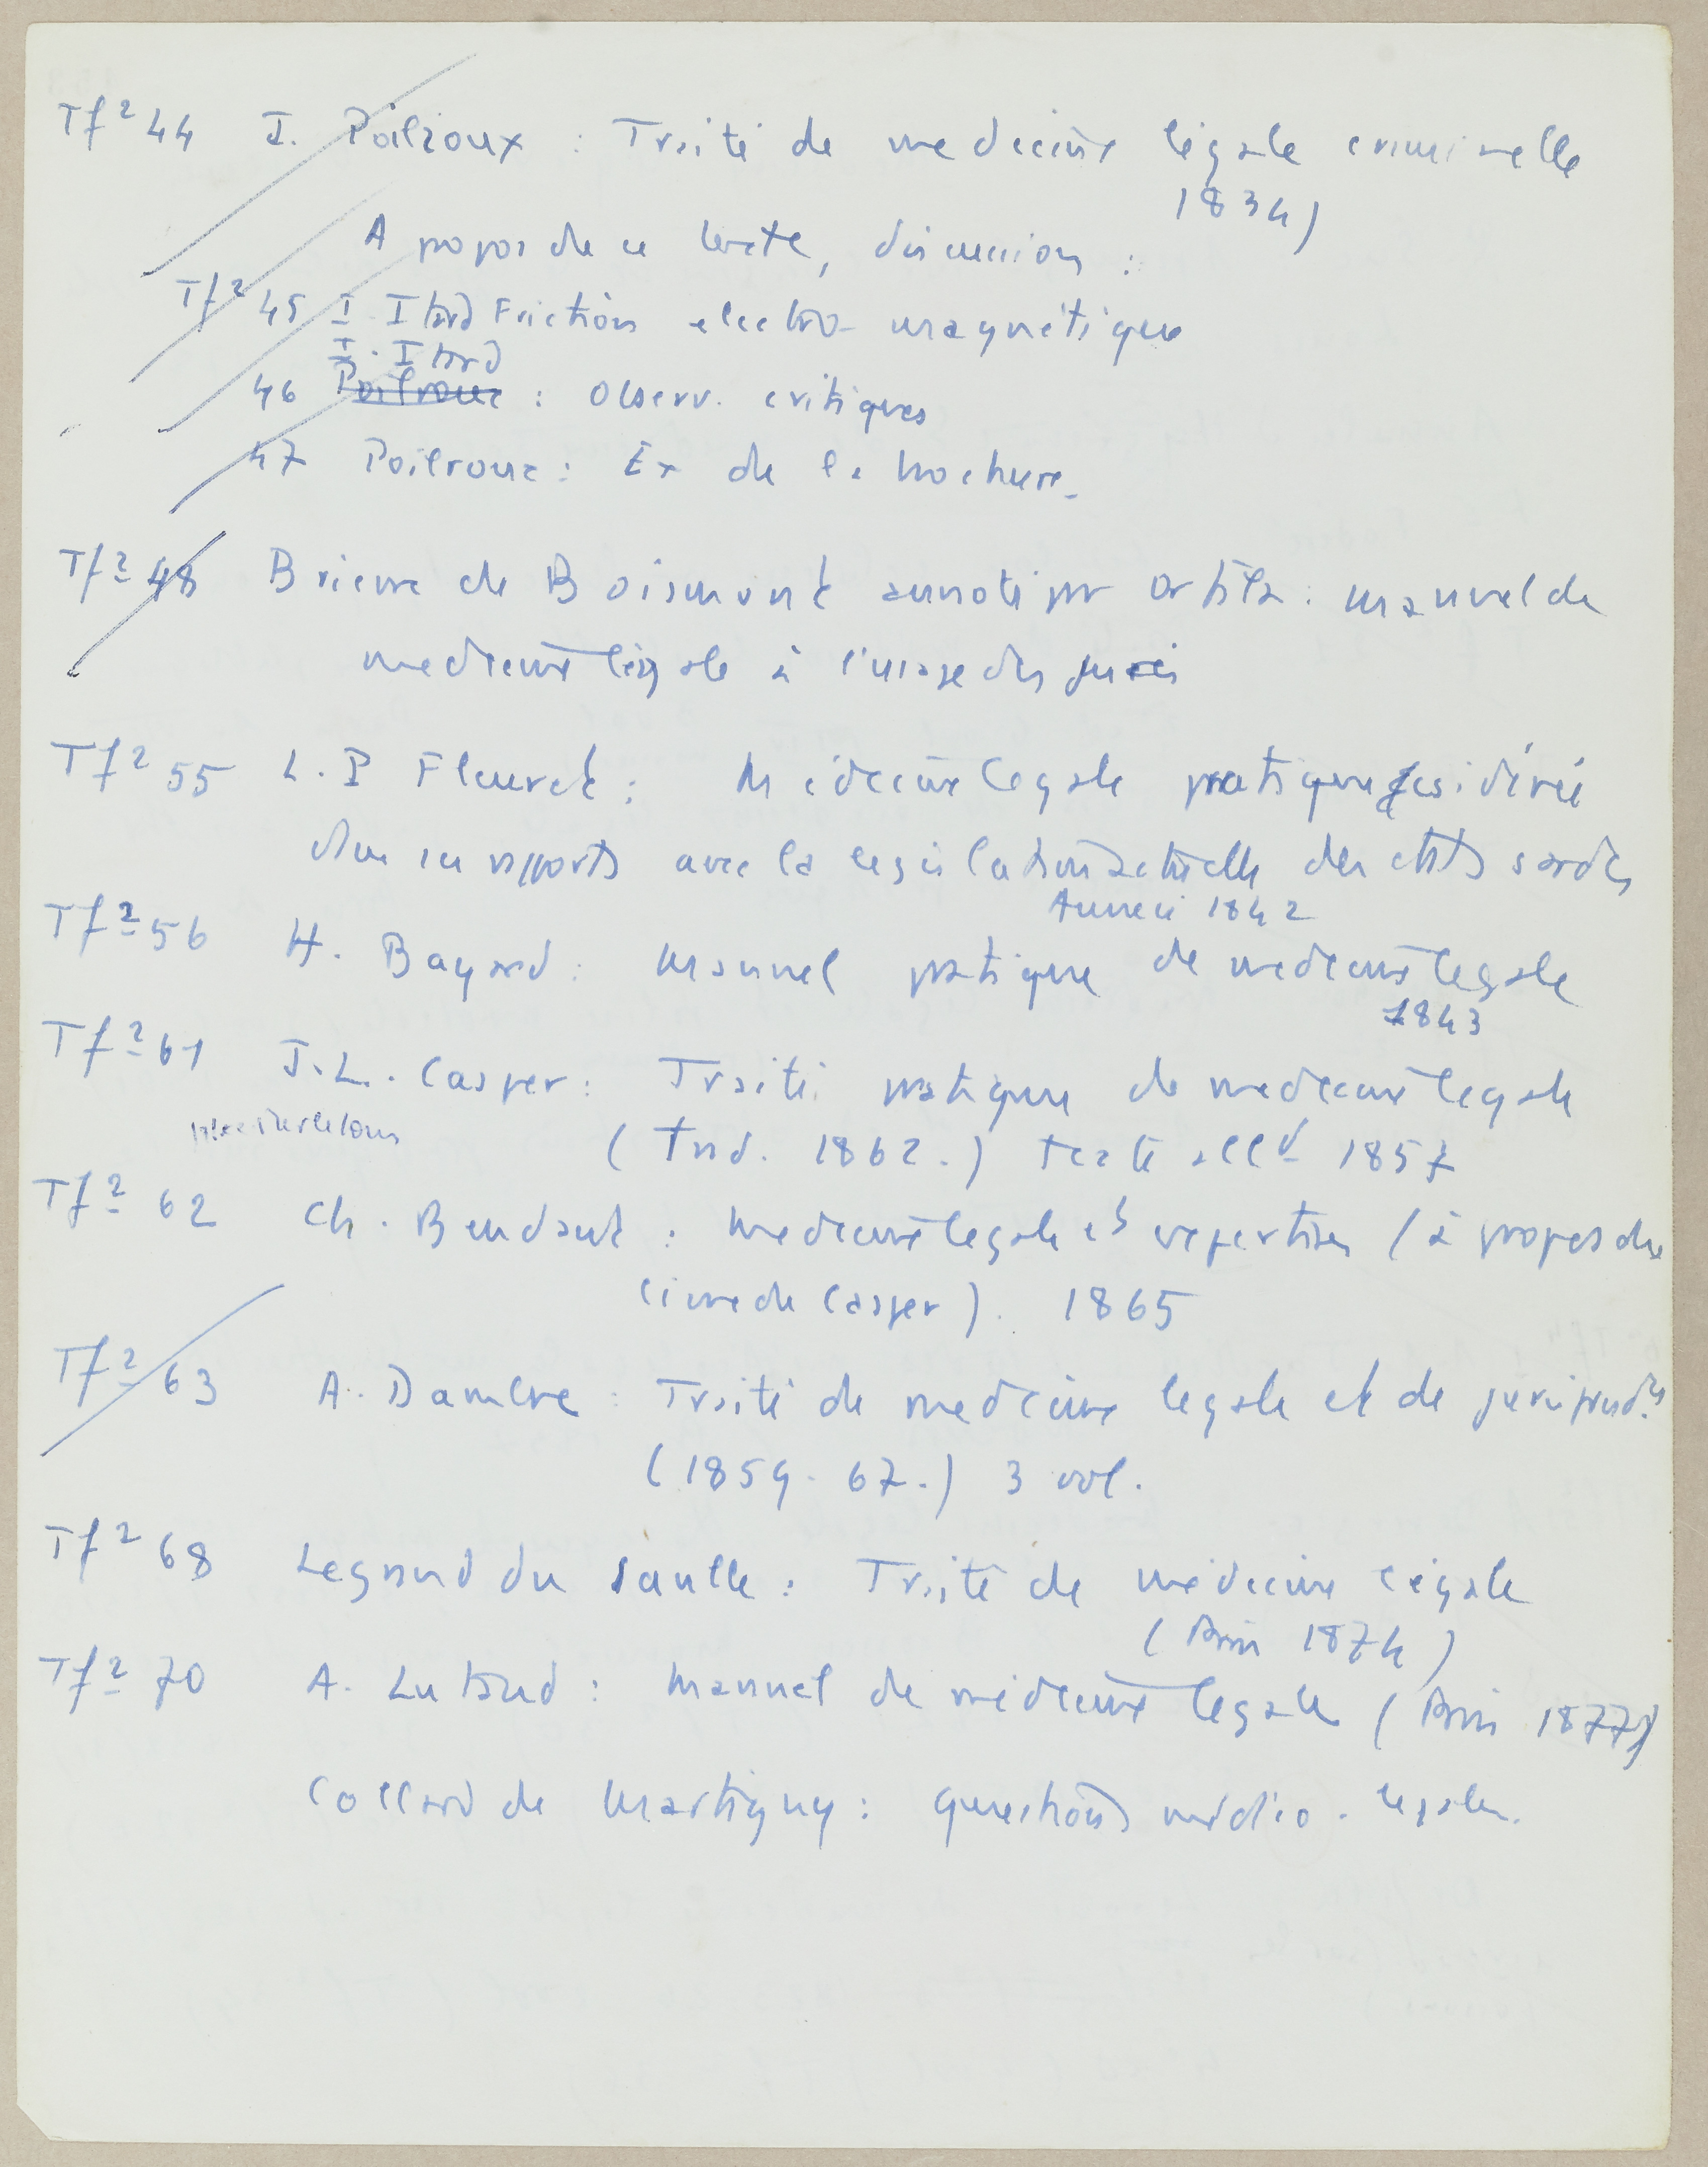 Tf² 44 J. Poilroux : Traité de medecine légale criminelle
1834)
A propos de ce texte, discussion :
Tf² 45 I. Itard Friction electro-magnétique
I. Itard
46 Poilroux : Observ. critiques
47 Poilroux : Ex de la brochure.
Tf² 48 Brierre de Boismont annoté par Orfila : manuel de
medecine légale à l'usage des jurés
Tf² 55 L. P Fleuret : Médecine legale pratique considérée
dans ses rapports avec la legislation actuelle des etats sardes
Annecy 1842
Tf² 56 H. Bayard : Manuel pratique de medecine legale
1843
Tf² 61 J.L. Casper : Traité pratique de medecine legale
(Trad. 1862.) texte alld 1857
Tf² 62 Ch. Beudant : Medecine legale et expertises (à propos du
livre de Casper). 1865
Tf² 63 A. Dambre : Traité de medecine legale et de jurisprud.
(1859-67.) 3 vol.
Tf² 68 Legrand du Saulle : Traité de médecine légale
(Paris 1874)
Tf² 70 A. Lutaud : Manuel de médecine legale (Paris 1877)
Collard de Martigny : questions médico-legales.